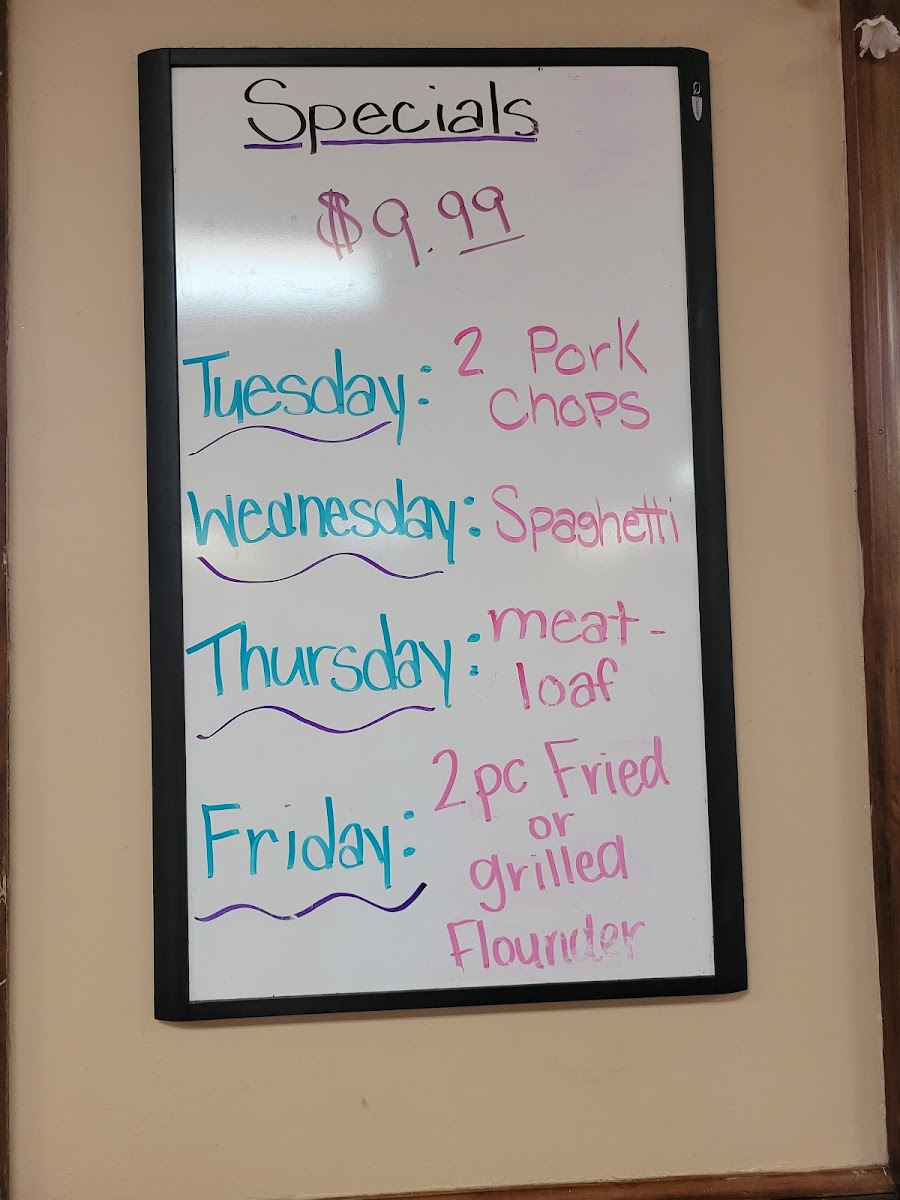 Specials
$9.99
Tuesday: 2 Pork
Chops
Wednesday: Spaghetti
Thursday: meat-
loaf
Friday: 2pc Fried
or
grilled
Flounder